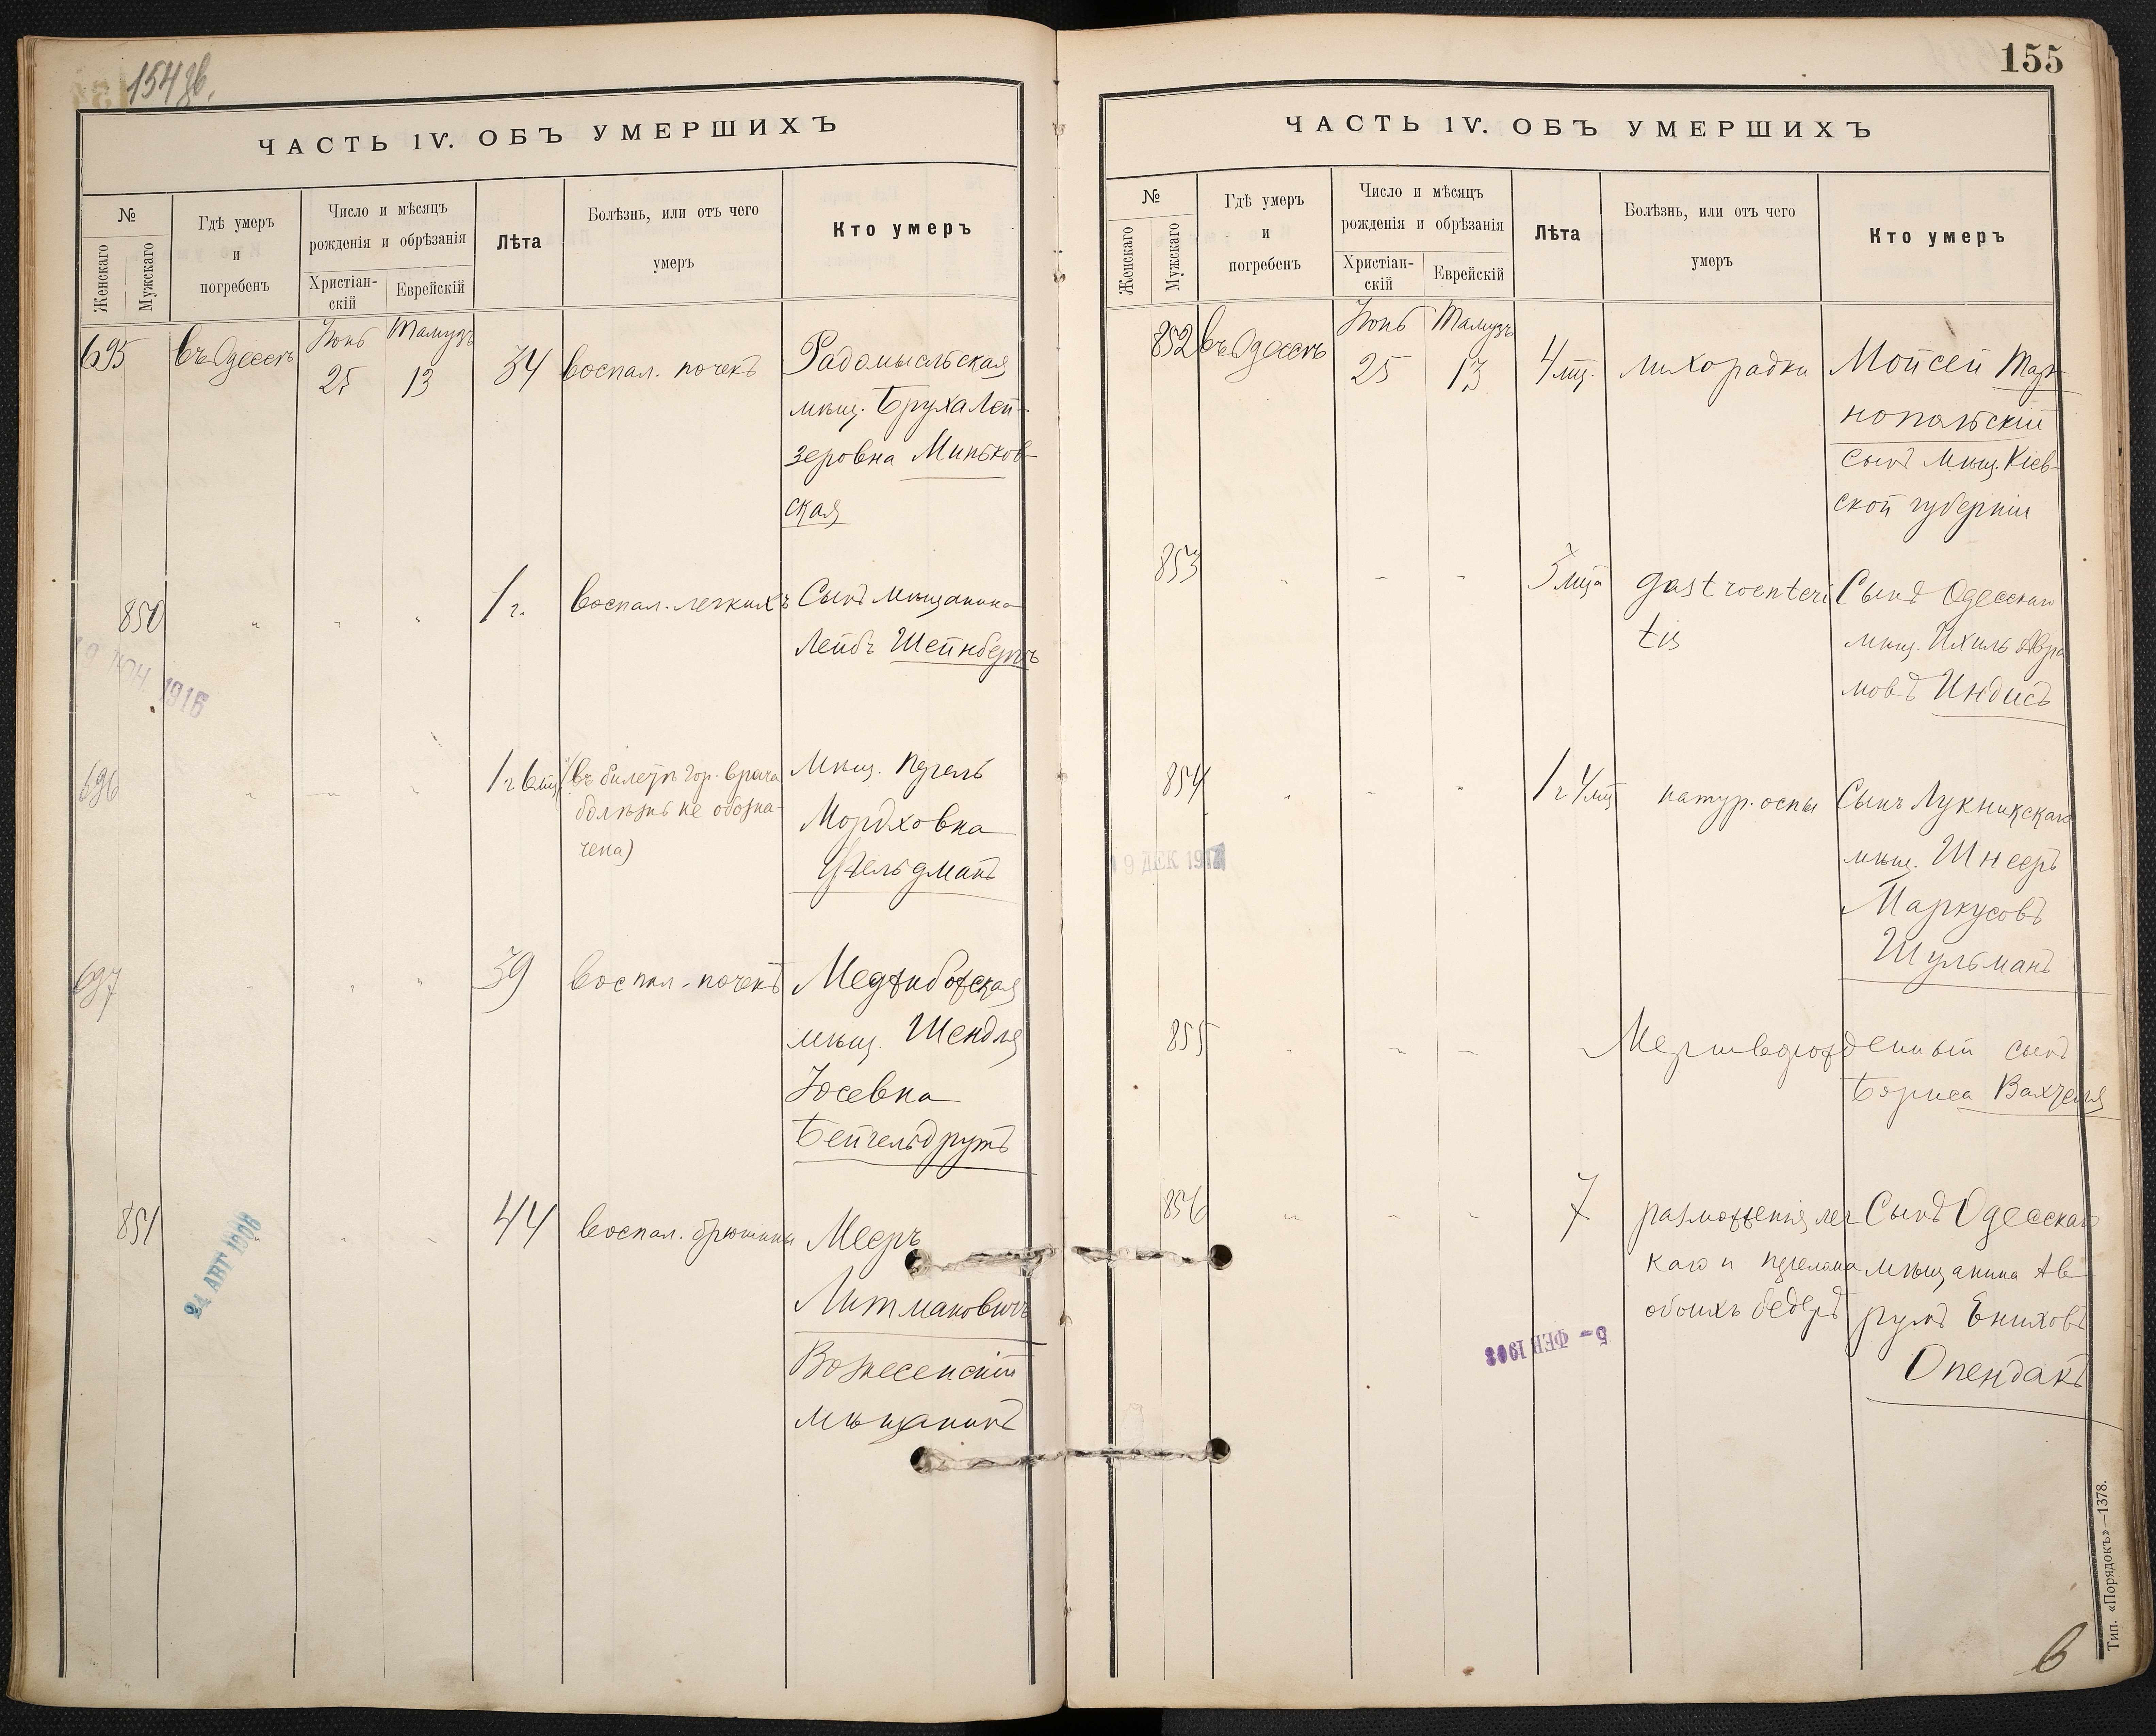 154 об.
ЧАСТЬ IV. ОБЪ УМЕРШИХЪ
№
Женскаго
Мужскаго
Гдѣ умеръ
и
погребенъ
Число и мѣсяцъ
рожденія и обрѣзанія
Христіан-
скій
Еврейскій
Лѣта
Болѣзнь, или отъ чего
умеръ
Кто умеръ
695 въ Одессѣ Іюнь 25 Тамузъ 13 34 воспал. почекъ Радомысльская
мѣщ. Бруха Лей-
зеровна Миньков-
ская
850 " " " 1 г. воспал. легкихъ Сынъ мѣщанина
Лейбъ Шейнбергъ
19 ІЮН. 1916
696 " " " 1 г. 6 мц. (въ билетѣ гор. врача Мѣщ.
болѣзнь не обозна- Мордховна
чена) Фельдманъ
697 " " " 39 воспал. почекъ Меджибожская
мѣщ. Шендля
Юсевна
Бейгельдрутъ
851 " " 44 воспал. брюшины Мееръ
Литмановичъ
Вознесенскій
мѣщанинъ
24 АВГ 1908
155
ЧАСТЬ IV. ОБЪ УМЕРШИХЪ
№
Женскаго
Мужскаго
Гдѣ умеръ
и
погребенъ
Число и мѣсяцъ
рожденія и обрѣзанія
Христіан-
скій
Еврейскій
Лѣта
Болѣзнь, или отъ чего
умеръ
Кто умеръ
852 въ Одессѣ Іюнь 25 Тамузъ 13 4 мц. лихорадки Мойсей Тар-
нопольскій
сынъ мѣщ. Кіев-
ской губерніи
853 " " " 3 мца gastroenteri Сынъ Одесскаго
tis мѣщ. Ихиль Авра
мовъ Индисъ
854 " " " 1 г 4 мц натур. оспы Сынъ Лукникскаго
мѣщ. Шнееръ
Маркусовъ
Шульманъ
9 ДЕК 191
855 " " " Мертворожденный сынъ
Бориса
856 " " " 7 размозженія лег Сынъ Одесскаго
каго и перелома мѣщанина Ав
обоихъ бедеръ румъ Ениховъ
Опендакъ
5 - ФЕВ 1903
Тип. «Порядокъ»—1378.